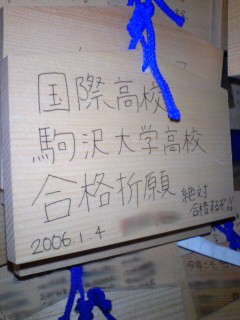 国際高校
駒沢大学高校
合格祈願
絶対
合格するぞ!!
2006.1.4